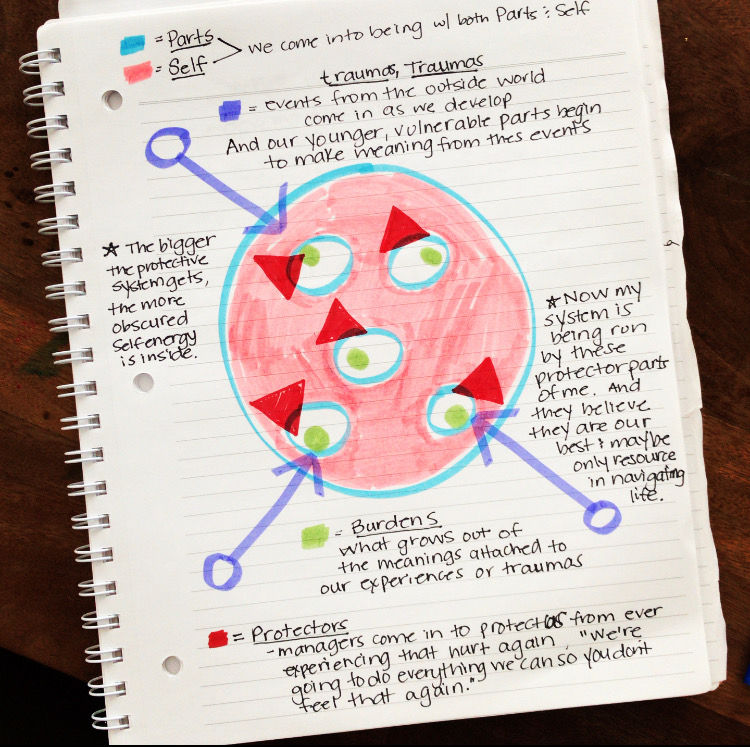 = Parts
= Self
We come into being w/ both Parts & Self
traumas, Traumas
= events from the outside world
come in as we develop
And our younger, vulnerable parts begin
to make meaning from thes events
☆ The bigger
the protective
system gets,
the more
obscured
Self energy
is inside.
☆ Now my
system is
being run
by these
protector parts
of me. And
they believe
they are our
best & maybe
only resource
in navigating
life.
= Burdens
what grows out of
the meanings attached to
our experiences or traumas
= Protectors
- managers come in to protect us from ever
experiencing that hurt again. "We're
going to do everything we can so you don't
feel that again."